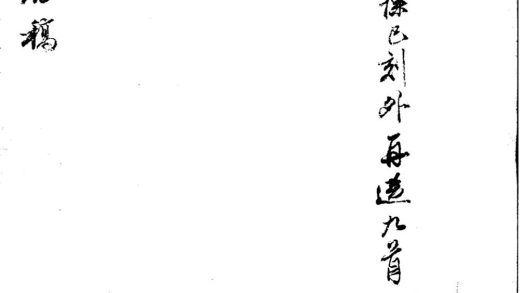 除已刻外再選九首
稿